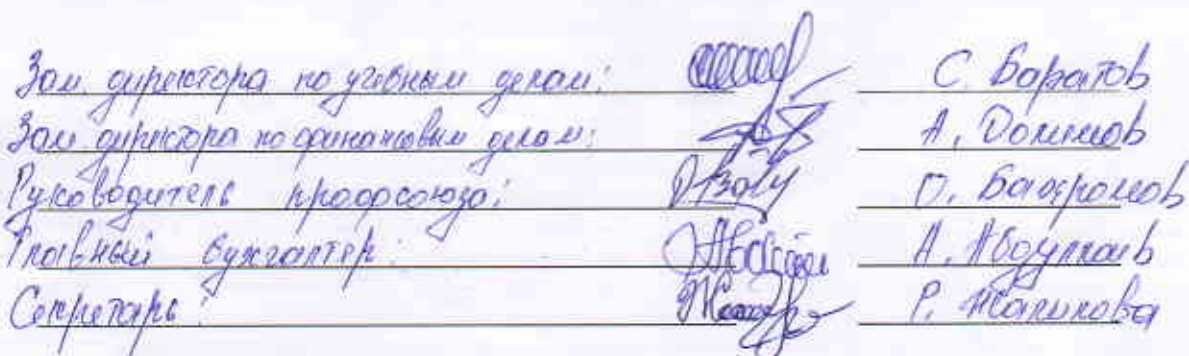 Зам. директора по учебным делам: С. Баратов
Зам. директора по финансовым делам: А.
Руководитель профсоюза: О.
Главный бухгалтер: А.
Секретарь: Р. Жалилова